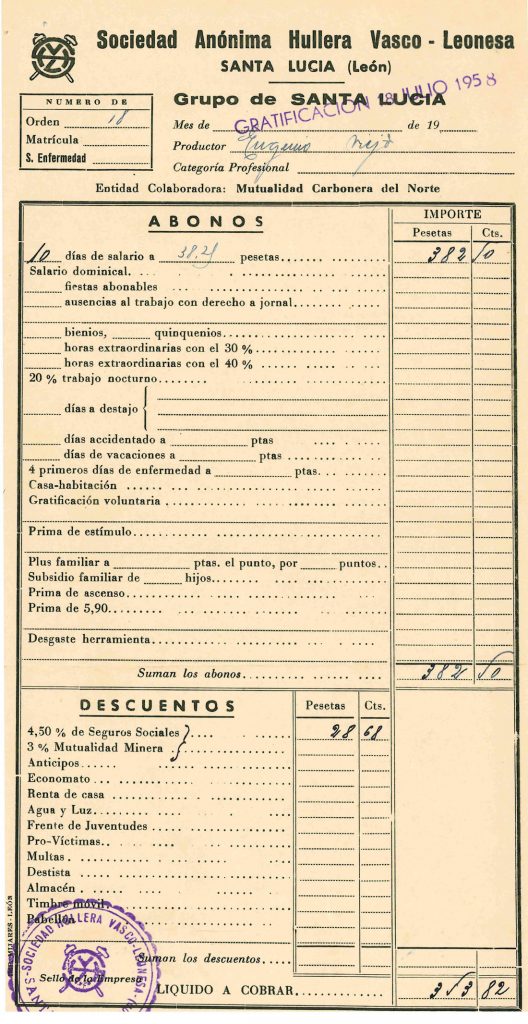 Sociedad Anónima Hullera Vasco - Leonesa
SANTA LUCIA (León)
NUMERO DE
Orden 18
Matrícula
S. Enfermedad
Grupo de SANTA LUCIA
GRATIFICACION 18 JULIO 1958
Mes de de 19
Productor Eugenio
Categoría Profesional
Entidad Colaboradora: Mutualidad Carbonera del Norte
ABONOS
IMPORTE
Pesetas Cts.
10 días de salario a 38,25 pesetas 382 50
Salario dominical.
fiestas abonables
ausencias al trabajo con derecho a jornal
bienios, quinquenios
horas extraordinarias con el 30 %
horas extraordinarias con el 40 %
20 % trabajo nocturno
días a destajo
días accidentado a ptas
días de vacaciones a ptas
4 primeros días de enfermedad a ptas.
Casa-habitación
Gratificación voluntaria
Prima de estímulo
Plus familiar a ptas. el punto, por puntos
Subsidio familiar de hijos
Prima de ascenso
Prima de 5,90
Desgaste herramienta
Suman los abonos 382 50
DESCUENTOS
Pesetas Cts.
4,50 % de Seguros Sociales 28 68
3 % Mutualidad Minera
Anticipos
Economato
Renta de casa
Agua y Luz
Frente de Juventudes
Pro-Víctimas
Multas
Destista
Almacén
Timbre móvil
Pabellón
Suman los descuentos
SOCIEDAD HULLERA VASCO-LEONESA
Sello de la Empresa
LIQUIDO A COBRAR 353 82
MIJARES-LEÓN